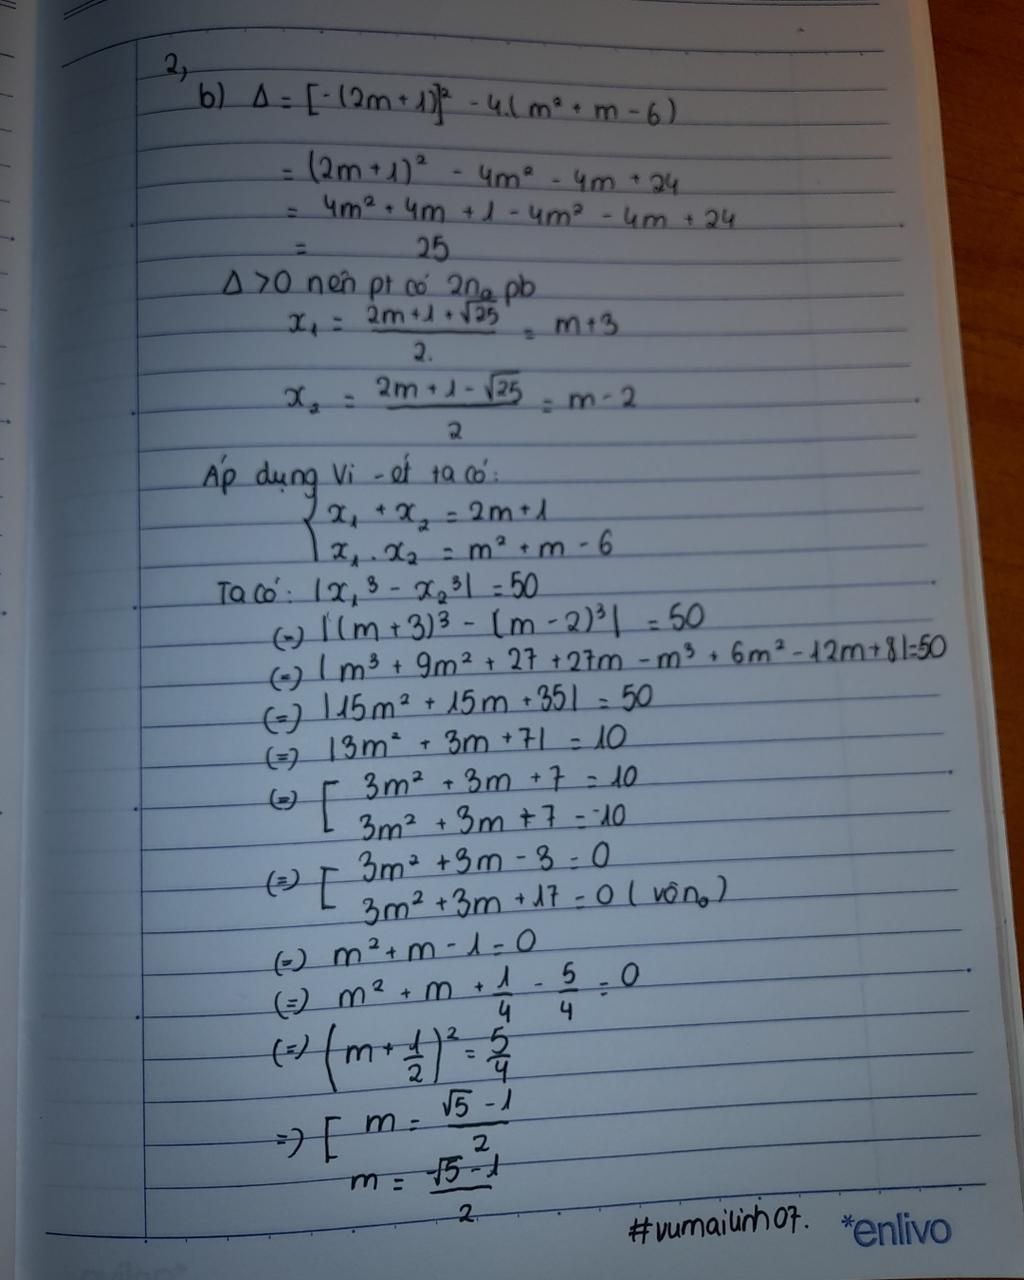 2,
b) Δ = [-(2m+1)]² - 4.(m² + m - 6)
= (2m+1)² - 4m² - 4m + 24
= 4m² + 4m + 1 - 4m² - 4m + 24
= 25
Δ > 0 nên pt có 2n₀ pb
x₁ = (2m+1+√25)/2. = m+3
x₂ = (2m+1-√25)/2 = m-2
Áp dụng Vi-ét ta có:
{ x₁ + x₂ = 2m+1
x₁ . x₂ = m² + m - 6
Ta có: |x₁³ - x₂³| = 50
(=) |(m+3)³ - (m-2)³| = 50
(=) |m³ + 9m² + 27 + 27m - m³ + 6m² - 12m + 8| = 50
(=) |15m² + 15m + 35| = 50
(=) |3m² + 3m + 7| = 10
(=) [ 3m² + 3m + 7 = 10
3m² + 3m + 7 = -10
(=) [ 3m² + 3m - 3 = 0
3m² + 3m + 17 = 0 (vôn₀)
(=) m² + m - 1 = 0
(=) m² + m + 1/4 - 5/4 = 0
(=) (m + 1/2)² = 5/4
=) [ m = (√5 - 1)/2
m = (-√5 - 1)/2
#vumailinh07.
*enlivo